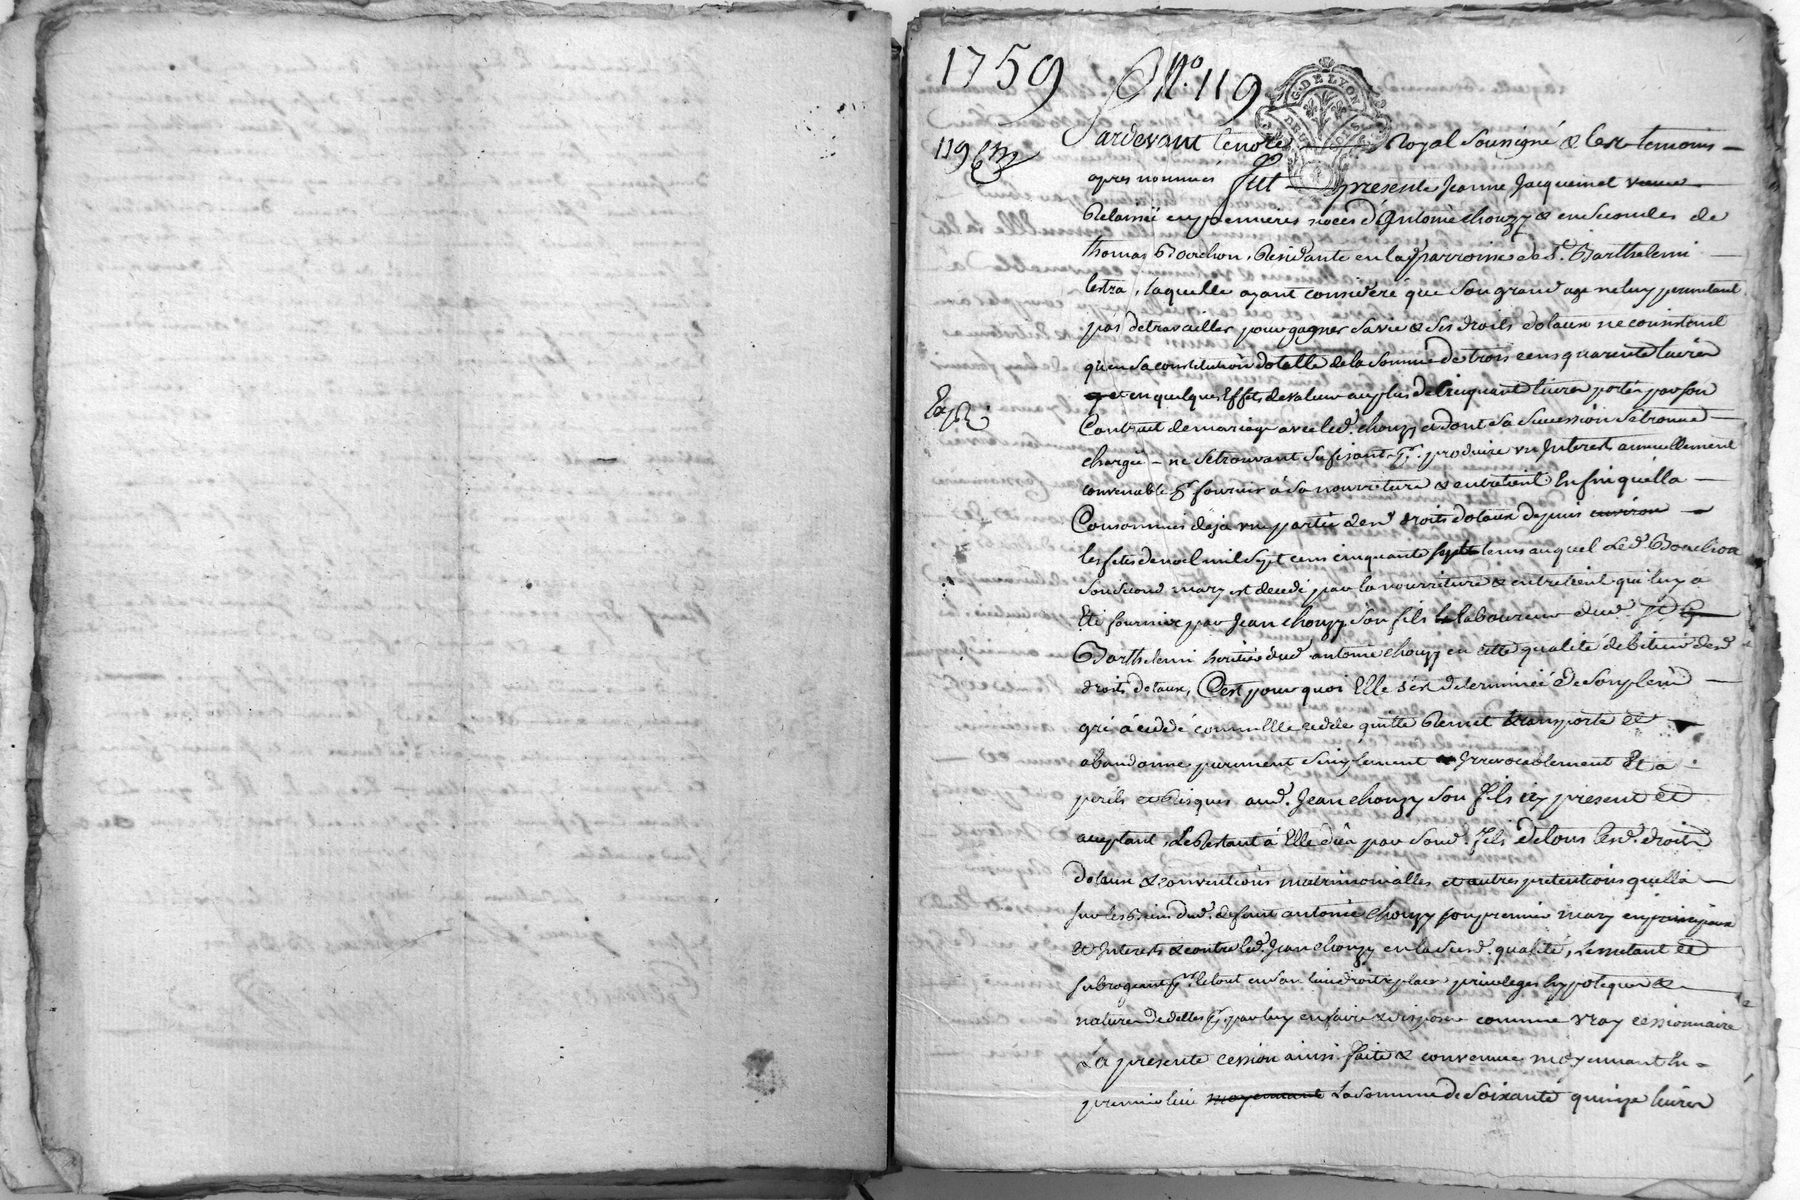 1759
No. 119
G. DE LYON
119
Pardevant le no.re Royal soussigné & les temoins
apres nommés fut presente Jeanne Jacquemet veuve
Relaissée en premieres noces d'Antoine chouzy & en secondes de
thomas Bouchon, Residante en la parroisse de St. Barthelemi
lestra, laquelle ayant consideré que son grand age ne luy permetant
pas de travailler pour gagner sa vie & ses droits dotaux ne consistent
qu'en sa constitution dotalle de la somme de trois cens quarente livres
et en quelques Effets de valeur au plus de Cinquante livres portés par son
Contract de mariage avec led. chouzy et dont sa succession se trouve
chargée ne se trouvant sufisant pr. produire un Interest annuellement
convenable pr. fournir à sa nourriture & entretient Enfin quella
Consommés deja une partie desd. droits dotaux depuis environ
les fetes de noel mil sept cens cinquante sept tems auquel led. Bouchon
son second mary est decedé par la nourriture & entretient qui luy a
Eté fournie par Jean chouzy son fils laboureur dud. St.
Barthelemi heritier dud. antoine chouzy en cette qualité debiteur desd.
droits dotaux, C'est pourquoi Elle s'est determinée & de son plein
gré à cedé comme Elle cedde quitte Remet transporte et
abandonne purement simplement & Irrevocablement Et a
perils et Risques aud. Jean chouzy son fils icy present et
acceptant, le Restant à Elle dû par sond. fils de tous lesd. droits
dotaux & conventions matrimonialles et autres pretentions quella
sur les Biens dud. defunt antoine chouzy son premier mary en principaux
et Interests & contre led. Jean chouzy en la susd. qualité, Le metant et
subrogeant pr. le tout en son lieu droit & place privileges hypoteques &
natures de dettes pr. par luy en faire & disposer comme vray cessionnaire
La presente cession ainsi faite & convenue moyennant En
premier lieu moyennant La somme de soixante quinze livres